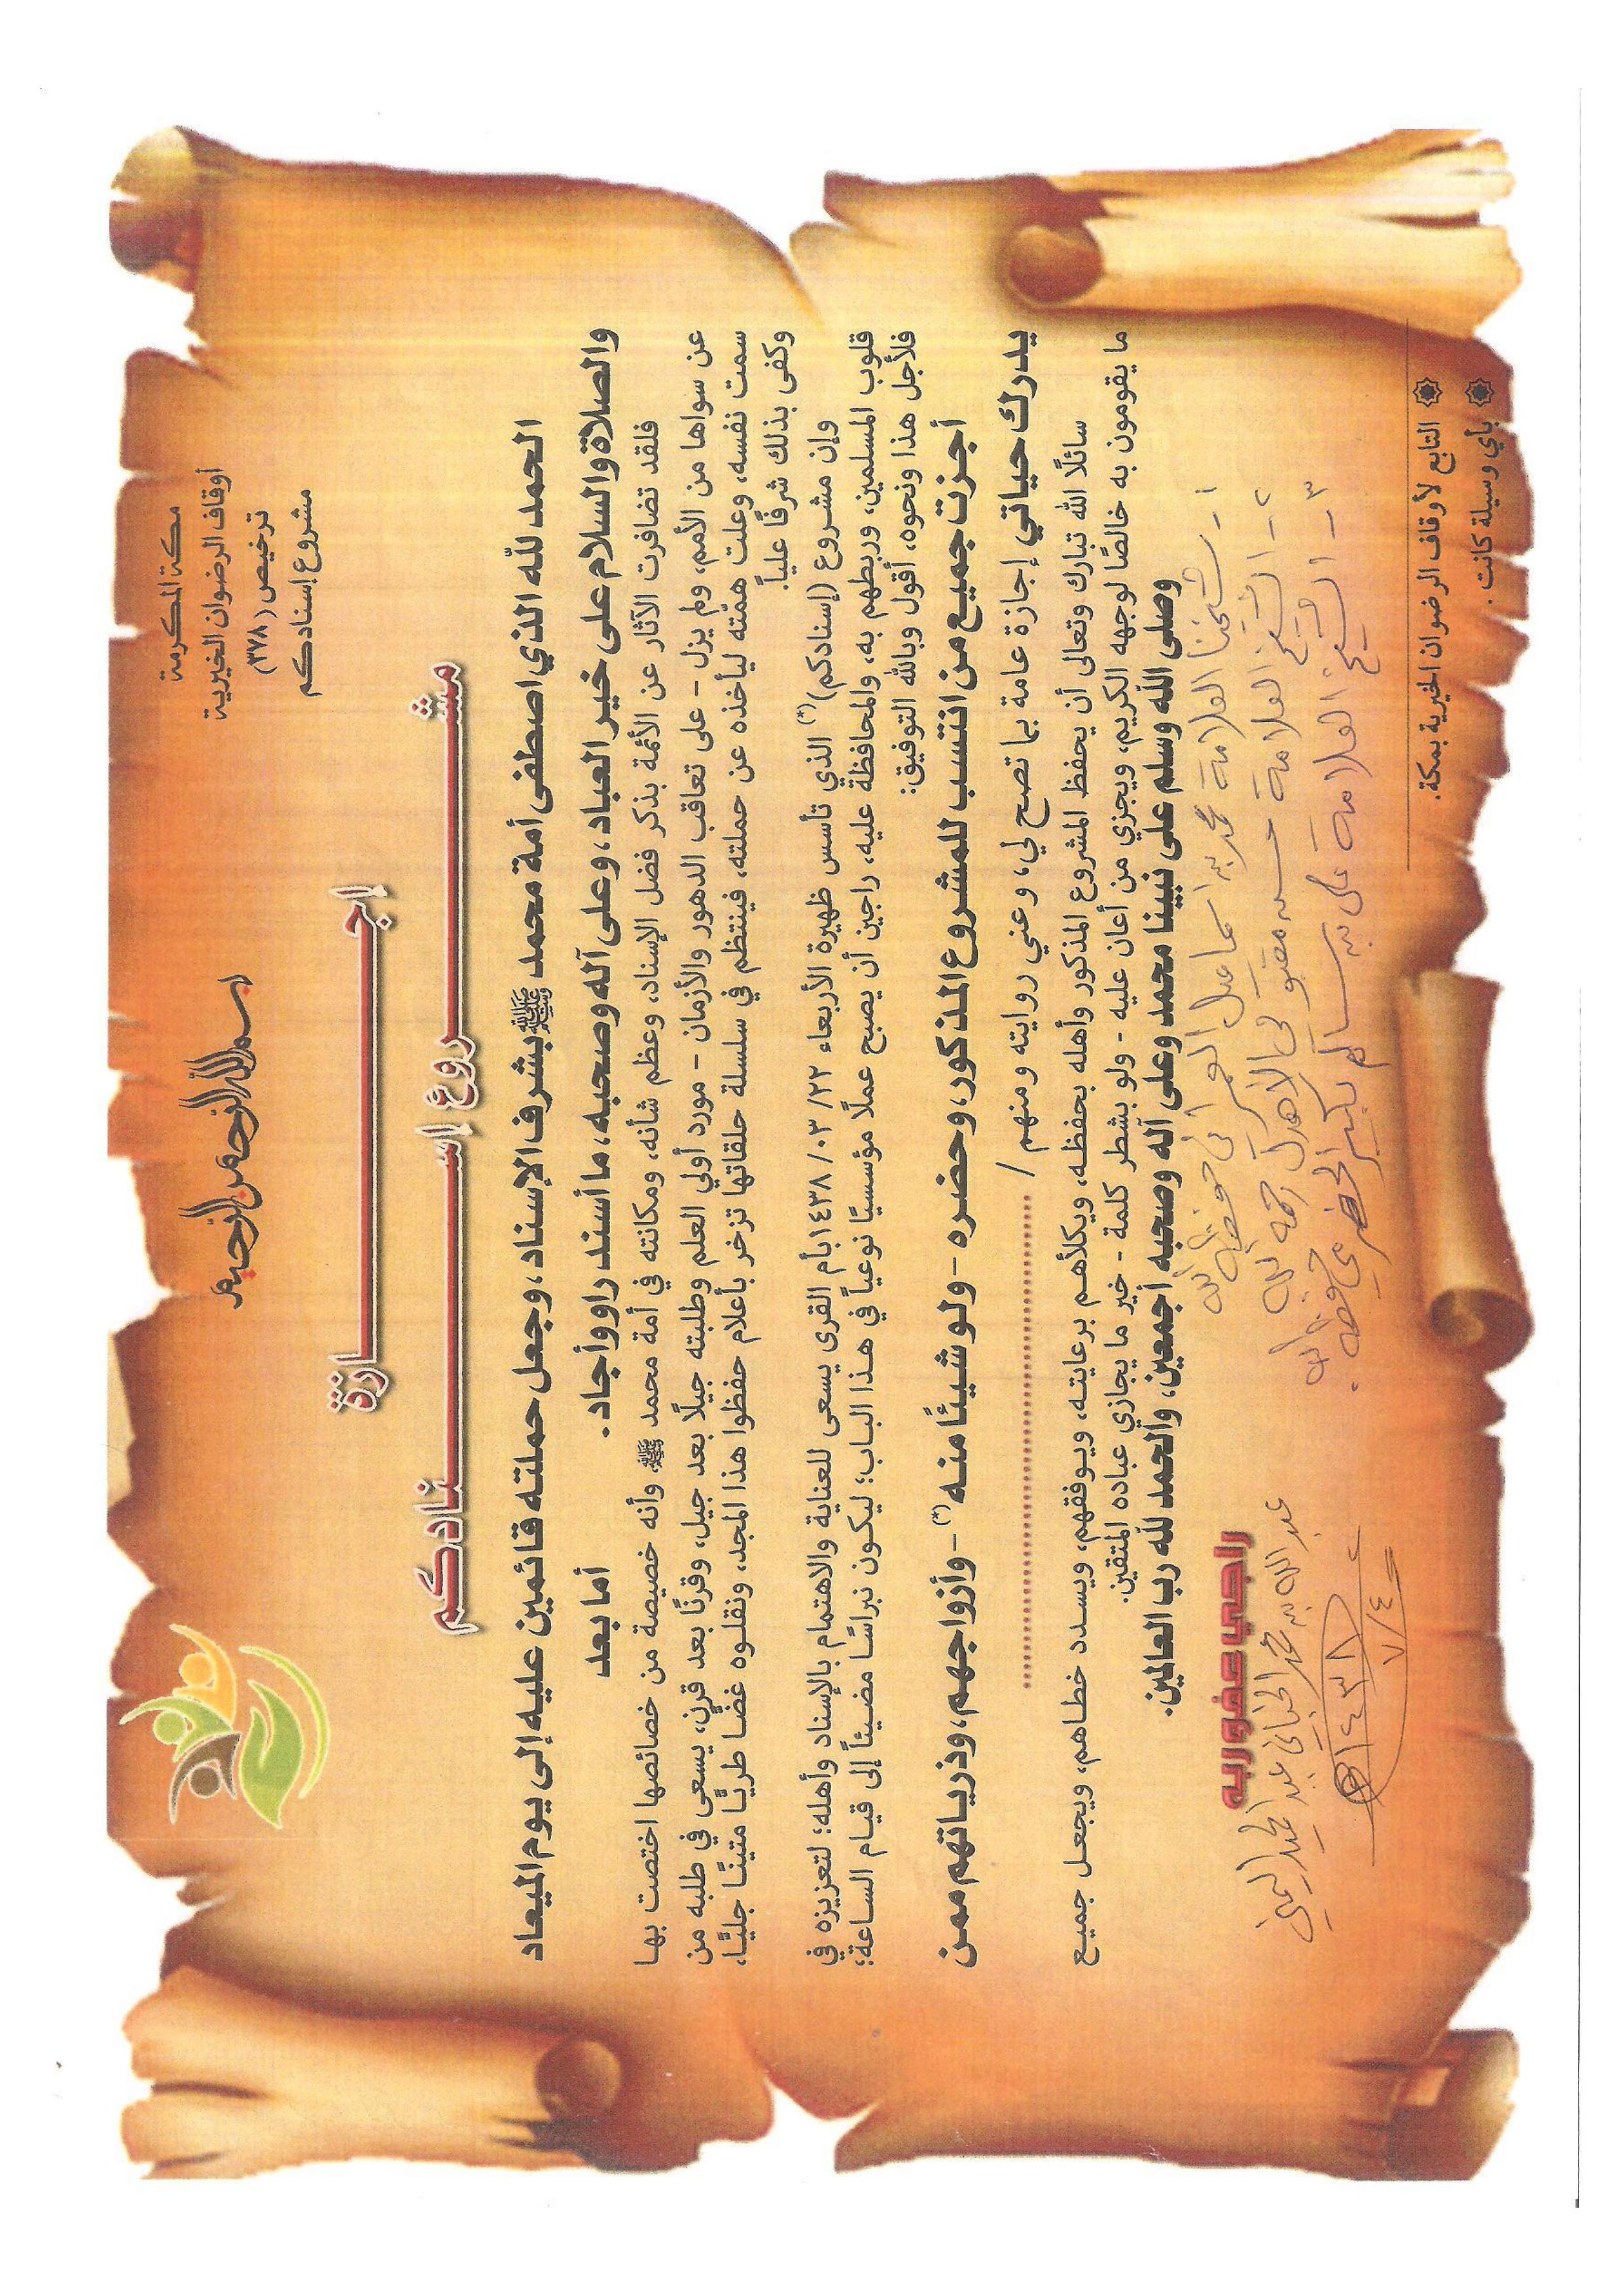 بسم الله الرحمن الرحيم
مكة المكرمة
أوقاف الرضوان الخيرية
ترخيص (٣٧٨)
مشروع إسنادكم
إجـــازة
مشـــروع إســـنادكم
الحمد لله الذي اصطفى أمة محمد ﷺ بشرف الإسناد، وجعل حملته قائمين عليه إلى يوم الميعاد
والصلاة والسلام على خير العباد، وعلى آله وصحبه، ما أسند راوٍ وأجاد.
أما بعد
فلقد تضافرت الآثار عن الأئمة بذكر فضل الإسناد، وعظم شأنه، ومكانته في أمة محمد ﷺ، وأنه خصيصة من خصائصها اختصت بها
عن سواها من الأمم، ولم يزل - على تعاقب الدهور والأزمان - مورد أولي العلم وطلبته جيلًا بعد جيل، وقرنًا بعد قرن، يسعى في طلبه من
سمت نفسه، وعلت همّته ليأخذه عن حملته، فينتظم في سلسلة حلقاتها تزخر بأعلام حفظوا هذا المجد، ونقلوه غضًّا طريًّا متينًا جليًّا،
وكفى بذلك شرفًا عليًا.
وإن مشروع (إسنادكم)(*) الذي تأسس ظهيرة الأربعاء ٢٢/ ٠٣/ ١٤٣٨ بأم القرى يسعى للعناية والاهتمام بالإسناد وأهله؛ لتعزيزه في
قلوب المسلمين، وربطهم به، والمحافظة عليه، راجين أن يصبح عملًا مؤسسيًا نوعياً في هذا الباب؛ ليكون نبراسًا مضيئاً إلى قيام الساعة؛
فلأجل هذا ونحوه، أقول وبالله التوفيق:
أجزت جميع من انتسب للمشروع المذكور، وحضره - ولو شيئًا منه(*) - وأزواجهم، وذرياتهم ممن
يدرك حياتي إجازة عامة بما تصح لي، وعني روايته ومنهم / ........................
سائلًا الله تبارك وتعالى أن يحفظ المشروع المذكور وأهله بحفظه، ويكلأهم برعايته، ويوفقهم، ويسدد خطاهم، ويجعل جميع
ما يقومون به خالصًا لوجهه الكريم، ويجزي من أعان عليه - ولو بشطر كلمة - خير ما يجازي عباده المتقين.
وصلى الله وسلم على نبينا محمد وعلى آله وصحبه أجمعين، والحمد لله رب العالمين.
١- شيخنا العلامة محمد بن اسماعيل العمراني حفظه الله
٢- الشيخ العلامة حسن مقبولي الأهدل رحمه الله
٣- الشيخ العلامة علي بن سالم بكير الحضرمي حفظه الله.
راجي عفو ربه
عبد الله بن محمد عبد المجيد اليمني
١٤٣٨
٧/٤
التابع لأوقاف الرضوان الخيرية بمكة.
بأي وسيلة كانت.